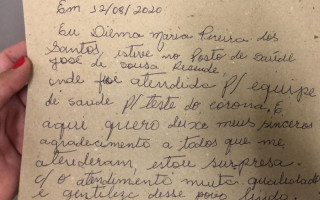 Em 12/08/2020
Eu Dilma Maria Pereira dos
Santos, estive no Posto de Saúde
José de Sousa Resende
onde fui atendida p/ equipe
de saude p/ teste do corona. E
aqui quero deixa meus sinceros
agradecimento a todos que me
atenderam, estou surpresa.
c/ o atendimento muita qualidade
e gentileza desse povo lindo